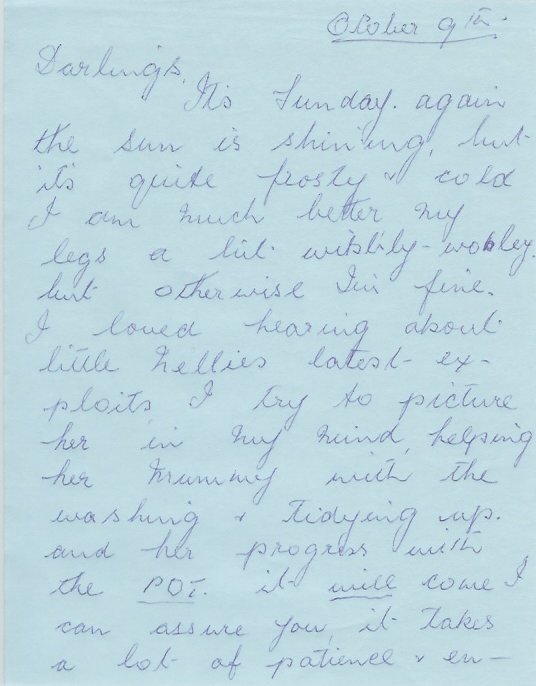 October 9th.
Darlings,
Its Sunday. again
the sun is shining, but
its quite frosty & cold
I am much better my
legs a bit wibbly-wobley.
but otherwise I'm fine.
I loved hearing about
little Nellies latest ex-
ploits I try to picture
her in my mind, helping
her Mummy with the
washing & tidying up.
and her progress with
the POT. it will come I
can assure you, it takes
a lot of patience & en-